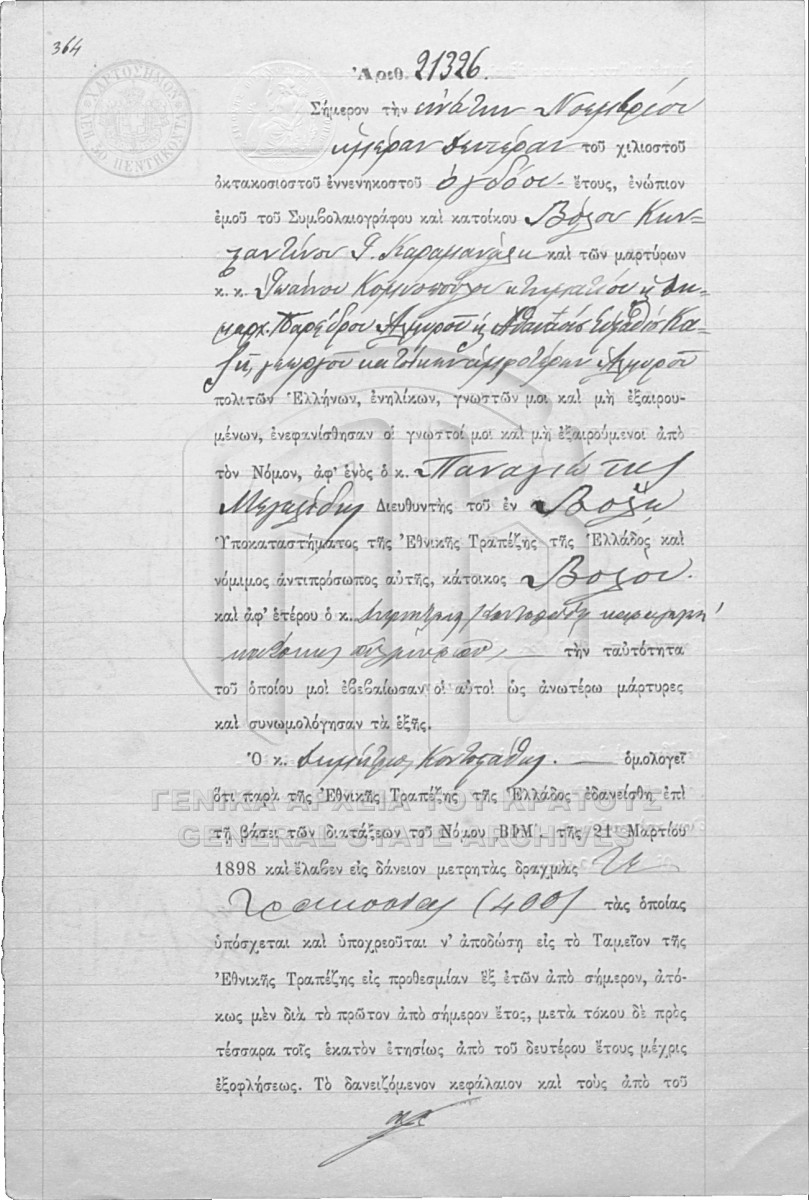 364
ΧΑΡΤΟΣΗΜΟΝ
Ἀριθ. 21326.
Σήμερον τὴν ἐνάτην Νοεμβρίου
ἡμέραν Δευτέραν τοῦ χιλιοστοῦ
ὀκτακοσιοστοῦ ἐννενηκοστοῦ ὀγδόου ἔτους, ἐνώπιον
ἐμοῦ τοῦ Συμβολαιογράφου καὶ κατοίκου Βόλου Κων-
σταντίνου καὶ τῶν μαρτύρων
κ. κ. Ἰωάννου κτηματίου
Παρέδρου Ἁλμυροῦ
γεωργοῦ κατοίκων ἀμφοτέρων Ἁλμυροῦ
πολιτῶν Ἑλλήνων, ἐνηλίκων, γνωστῶν μοι καὶ μὴ ἐξαιρου-
μένων, ἐνεφανίσθησαν οἱ γνωστοί μοι καὶ μὴ ἐξαιρούμενοι ἀπὸ
τὸν Νόμον, ἀφ' ἑνὸς ὁ κ. Παναγιώτης
Διευθυντὴς τοῦ ἐν Βόλῳ
Ὑποκαταστήματος τῆς Ἐθνικῆς Τραπέζης τῆς Ἑλλάδος καὶ
νόμιμος ἀντιπρόσωπος αὐτῆς, κάτοικος Βόλου.
καὶ ἀφ' ἑτέρου ὁ κ. Δημήτριος
κάτοικος τὴν ταὐτότητα
τοῦ ὁποίου μοὶ ἐβεβαίωσαν οἱ αὐτοὶ ὡς ἀνωτέρω μάρτυρες
καὶ συνωμολόγησαν τὰ ἑξῆς.
Ὁ κ. Δημήτριος ὁμολογεῖ
ὅτι παρὰ τῆς Ἐθνικῆς Τραπέζης τῆς Ἑλλάδος ἐδανείσθη ἐπὶ
ΓΕΝΙΚΑ ΑΡΧΕΙΑ ΤΟΥ ΚΡΑΤΟΥΣ
τῇ βάσει τῶν διατάξεων τοῦ Νόμου ΒΦΜ'. τῆς 21 Μαρτίου
GENERAL STATE ARCHIVES
1898 καὶ ἔλαβεν εἰς δάνειον μετρητὰς δραχμὰς τε
τρακοσίας (400) τὰς ὁποίας
ὑπόσχεται καὶ ὑποχρεοῦται ν' ἀποδώσῃ εἰς τὸ Ταμεῖον τῆς
Ἐθνικῆς Τραπέζης εἰς προθεσμίαν ἓξ ἐτῶν ἀπὸ σήμερον, ἀτό-
κως μὲν διὰ τὸ πρῶτον ἀπὸ σήμερον ἔτος, μετὰ τόκου δὲ πρὸς
τέσσαρα τοῖς ἑκατὸν ἐτησίως ἀπὸ τοῦ δευτέρου ἔτους μέχρις
ἐξοφλήσεως. Τὸ δανειζόμενον κεφάλαιον καὶ τοὺς ἀπὸ τοῦ